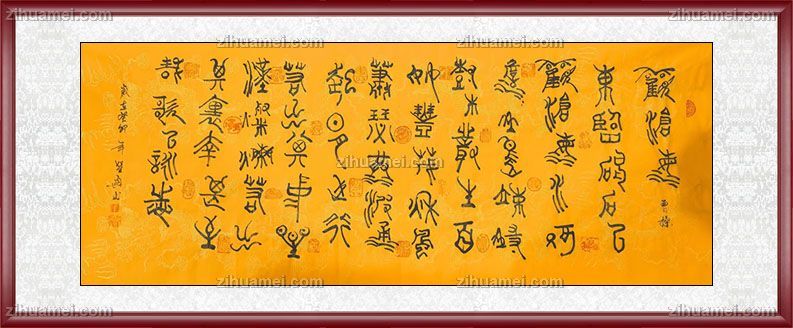 zihuamei.com
zihuamei.com
觀滄海
曹操
東臨碣石以
觀滄海水何
澹澹山島竦峙
樹木叢生百
艸豐茂秋風
蕭瑟洪波涌
起日月之行
若出其中星
漢燦爛若出
其裏幸甚至
哉歌以詠志
歲在癸卯年
zihuamei.com
zihuamei.com
zihuamei.com